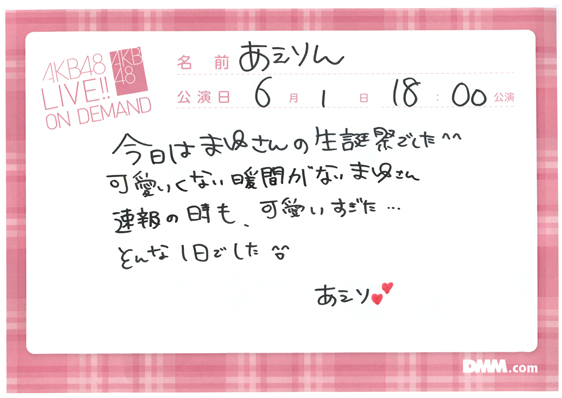 AKB48
LIVE!!
ON DEMAND
AKB
48
名 前 あミりん
公演日 6 月 1 日 18 : 00 公演
今日はまゆさんの生誕祭でした^^
可愛いくない暖間がないまゆさん
速報の時も、可愛いすぎた…
とんな1日でした
あミリ💕
DMM.com